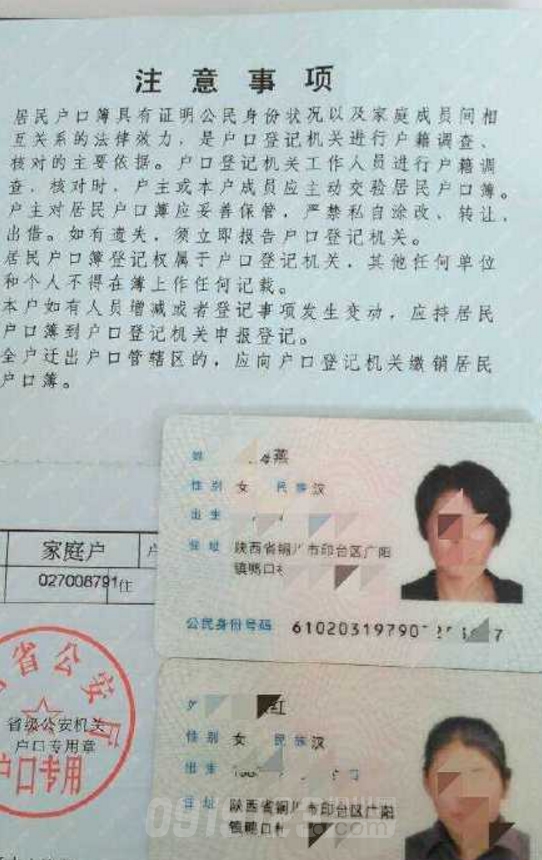 注意事项
居民户口簿具有证明公民身份状况以及家庭成员间相
互关系的法律效力，是户口登记机关进行户籍调查、
核对的主要依据。户口登记机关工作人员进行户籍调
查、核对时，户主或本户成员应主动交验居民户口簿。
户主对居民户口簿应妥善保管，严禁私自涂改、转让、
出借。如有遗失，须立即报告户口登记机关。
居民户口簿登记权属于户口登记机关，其他任何单位
和个人不得在簿上作任何记载。
本户如有人员增减或者登记事项发生变动，应持居民
户口簿到户口登记机关申报登记。
全户迁出户口管辖区的，应向户口登记机关缴销居民
户口簿。
姓 燕
性别 女 民族 汉
出生
住址 陕西省铜川市印台区广阳
镇鸭口
公民身份号码 61020319790 7
家庭户 户
027008791 住
省公安厅
省级公安机关
户口专用章
户口专用
红
性别 女 民族 汉
出生
住址 陕西省铜川市印台区广阳
镇鸭口